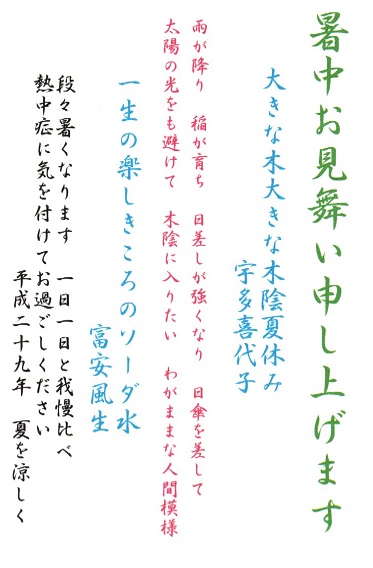 暑中お見舞い申し上げます
大きな木大きな木陰夏休み
宇多喜代子
雨が降り　稲が育ち　日差しが強くなり　日傘を差して
太陽の光をも避けて　木陰に入りたい　わがままな人間模様
一生の楽しきころのソーダ水
富安風生
段々暑くなります　一日一日と我慢比べ
熱中症に気を付けてお過ごしください
平成二十九年　夏を涼しく